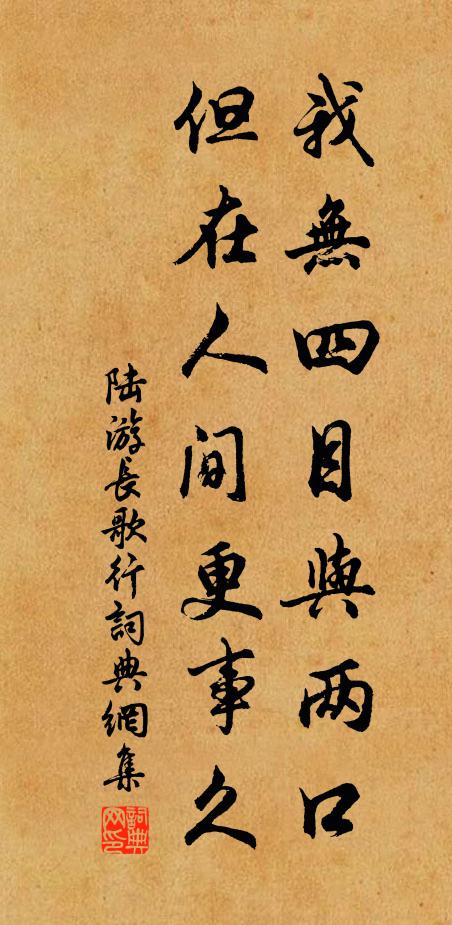 我無四目與两口
但在人间更事久
陆游長歌行詞典網集
詞典网印